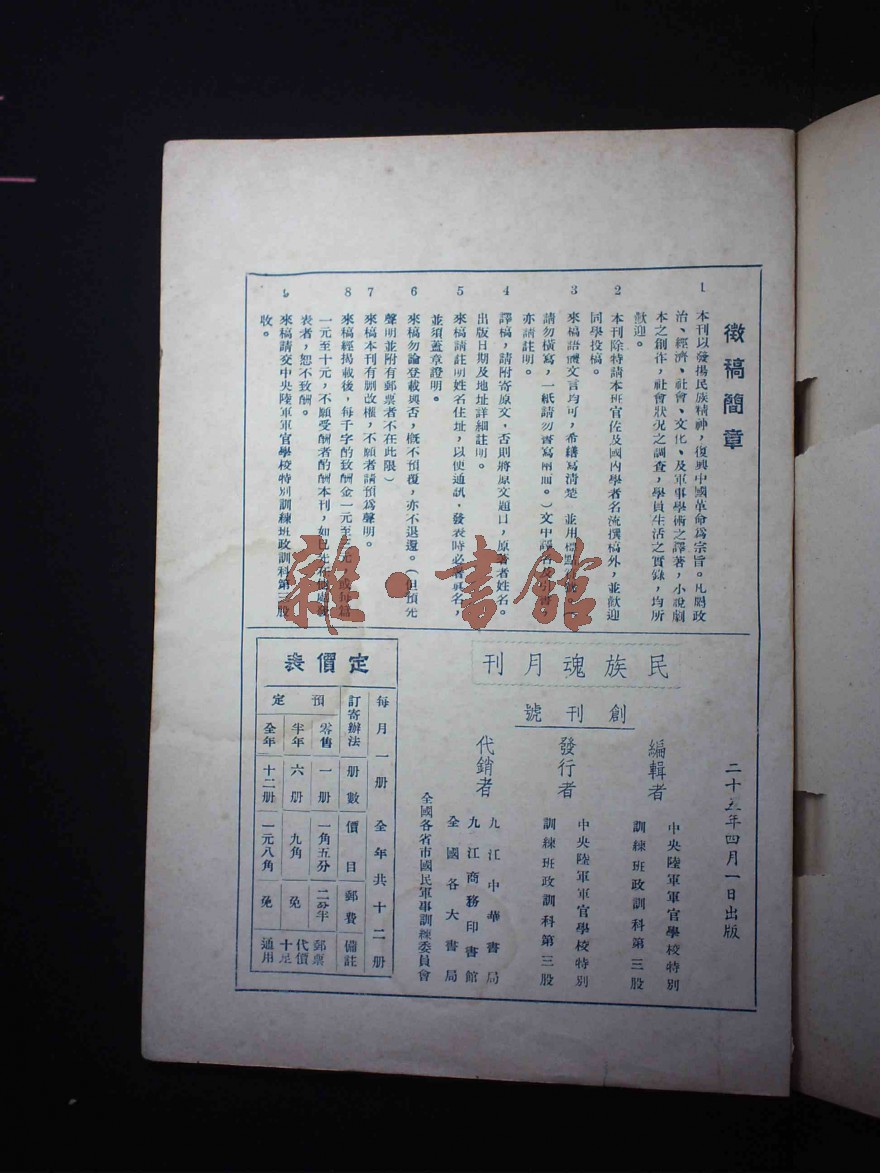 徵稿簡章
1 本刊以發揚民族精神，復興中國革命爲宗旨。凡屬政
治、經濟、社會、文化、及軍事學術之譯著，小說劇
本之創作，社會狀况之調查，學員生活之實錄，均所
歡迎。
2 本刊除特請本班官佐及國内學者名流撰稿外，並歡迎
同學投稿。
3 來稿語體文言均可，希繕寫清楚，並用標點
請勿橫寫，一紙請勿書寫兩面。）文中譯
亦請註明。
4 譯稿，請附寄原文，否則將原文題目，原著者姓名。
出版日期及地址詳細註明。
5 來稿請註明姓名住址，以便通訊，發表時必著眞名，
並須蓋章證明。
6 來稿勿論登載與否，概不預覆，亦不退還。（但預先
聲明並附有郵票者不在此限）
7 來稿本刊有删改權，不願者請預爲聲明。
8 來稿經揭載後，每千字酌致酬金一元至三元，或每篇
一元至十元，不願受酬者酌酬本刊，如已先在他處發
表者，恕不致酬。
9 來稿請交中央陸軍軍官學校特別訓練班政訓科第三股
收。
二十五年四月一日出版
民族魂月刊
創刊號
編輯者
中央陸軍軍官學校特別
訓練班政訓科第三股
發行者
中央陸軍軍官學校特別
訓練班政訓科第三股
代銷者
九江中華書局
九江商務印書館
全國各大書局
全國各省市國民軍事訓練委員會
定價表
每月一册 全年共十二册
訂寄辦法 册數 價目 郵費 備註
零售 一册 一角五分 二分半 郵票
預定 半年 六册 九角 免 代價
全年 十二册 一元八角 免 十足
通用
雜·書館